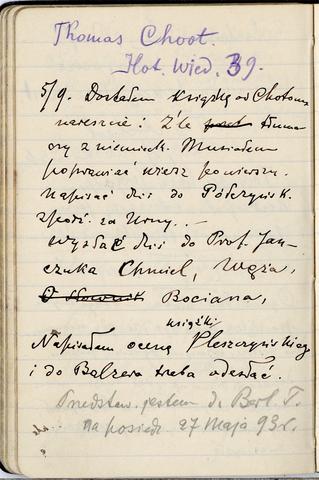 Thomas Choot.
Hot. Wied. 39.
5/9. Dostałem książkę od Chotoma
nareszcie! Źle tłuma
czy z niemieck. Musiałem
poprawiać wiersz po wierszu.
Napisać dziś do Półczyńsk.
za Urny. . –
wysłać dziś do Prof. Jan-
czuka Chmiel, Węża,
O słownik Bociana,
książki
Napisałem ocenę Pleszczyńskieg
i do Balzera trzeba odesłać.
Przedstaw. jestem d. Berl. T.
na posiedz 27 Maja 93 r.